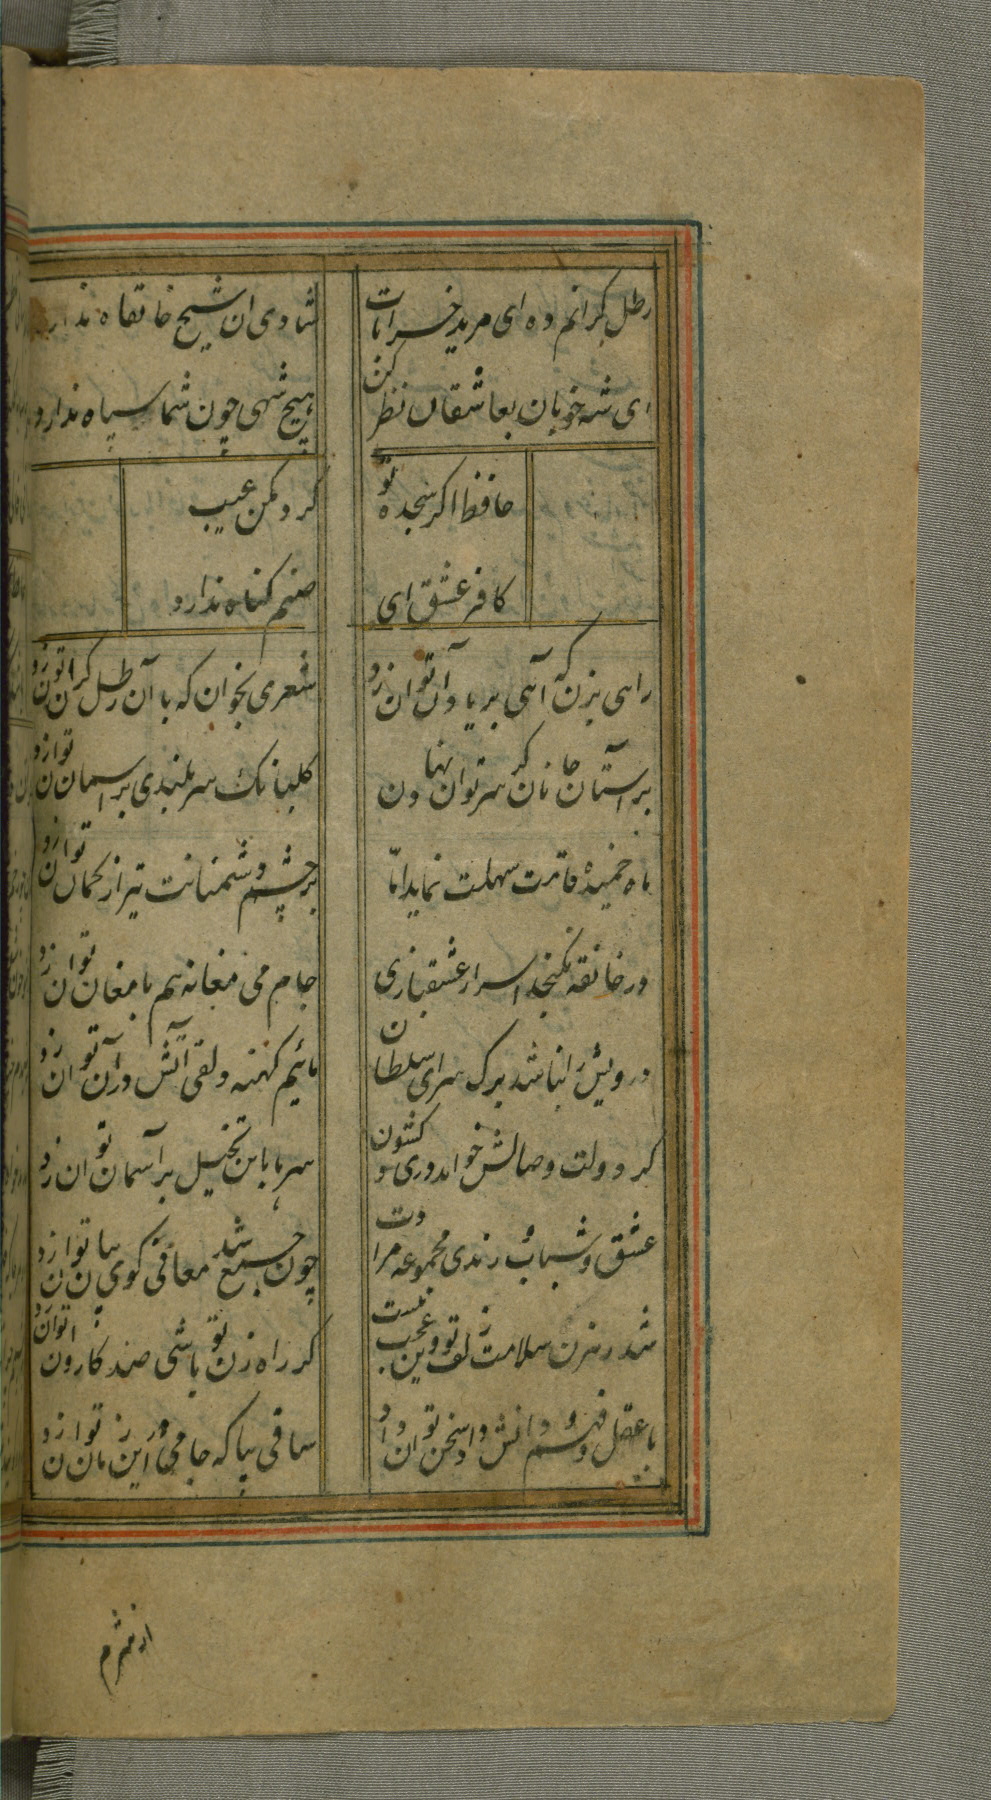 رطل گرانم ده ای مرید خرابات شادی ان شیخ خانقاه ندارد
ای شه خوبان بعاشقان نظر کن هیچ شهی چون شما سپاه ندارد
حافظ اکر سجده تو کرد مکن عیب
کافر عشق ای صنم کناه ندارد
راهی بزن که آهی بر یاد آن توان زد شعری بخوان که با آن رطل گران توان زد
بر آستان جانان کر سر توان نهادن کلبانک سربلندی بر اسمان توان زد
ماه خمیده قامت سهلت نماید امّا بر چشم دشمنانت تیر از کمان توان زد
در خانقه نکنجد اسرار عشقبازی جام می مغانه هم با مغان توان زد
درویش را نباشد برک سرای سلطان مائیم کهنه دلقی آتش در آن توان زد
کر دولت وصالش خواهد دری کشودن سرها باین تخیل بر آسمان توان زد
عشق و شباب و رندی مجموعه مرادت چون جمع شد معانی کوی بیان توان زد
شد رهزن سلامت زلف تو وین عجب نیست کر راه زن تو باشی صد کاروان توان زد
با عقل و فهم و دانش داد سخن توان داد ساقی بیا که جامی در این زمان توان زد
از شرم